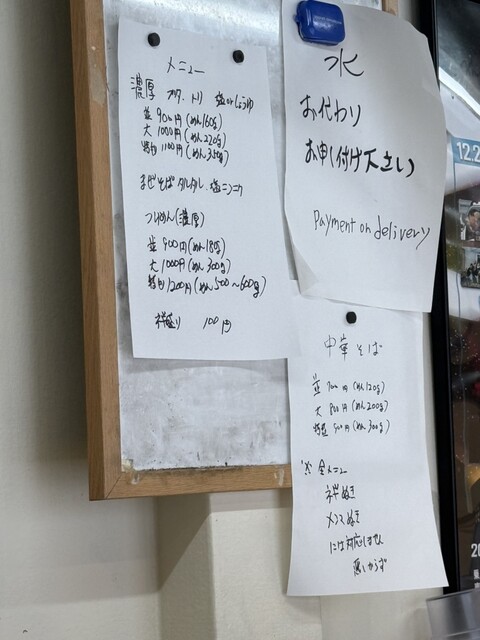 メニュー
濃厚 ブタ、トリ 塩orしょうゆ
並 900円(めん160g)
大 1000円(めん220g)
特大 1100円(めん350g)
まぜそば タルタル、塩ニンニク
つけめん(濃厚)
並 900円(めん180g)
大 1000円(めん300g)
特大 1200円(めん500〜600g)
100円
水
お代わり
お申し付け下さい
Payment on delivery
中華そば
並 700円(めん120g)
大 800円(めん200g)
(めん300g)
※全メニュー
メンマぬき
には対応しません
悪しからず
12.2
20